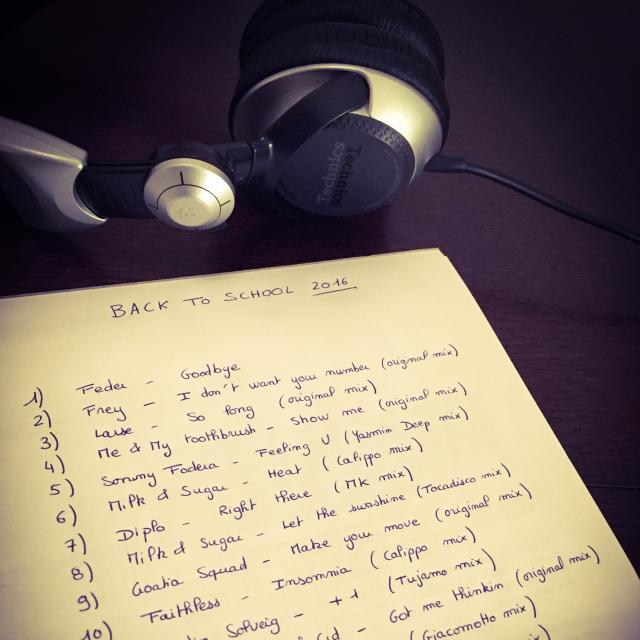 Technics
Technics
BACK TO SCHOOL 2016
1) Feder - Goodbye
2) Frey - I don't want your number (original mix)
3) Larse - So long (original mix)
4) Me & My toothbrush - Show me (original mix)
5) Sonny Fodera - Feeling U (Yasmin Deep mix)
6) Milk & Sugar - Heat (Calippo mix)
7) Diplo - Right there (MK mix)
8) Milk & Sugar - Let the sunshine (Tocadisco mix)
9) Croatia Squad - Make your move (original mix)
10) Faithless - Insomnia (Calippo mix)
Solveig - +1 (Tujamo mix)
Cid - Got me thinkin (original mix)
(Giacomotto mix)